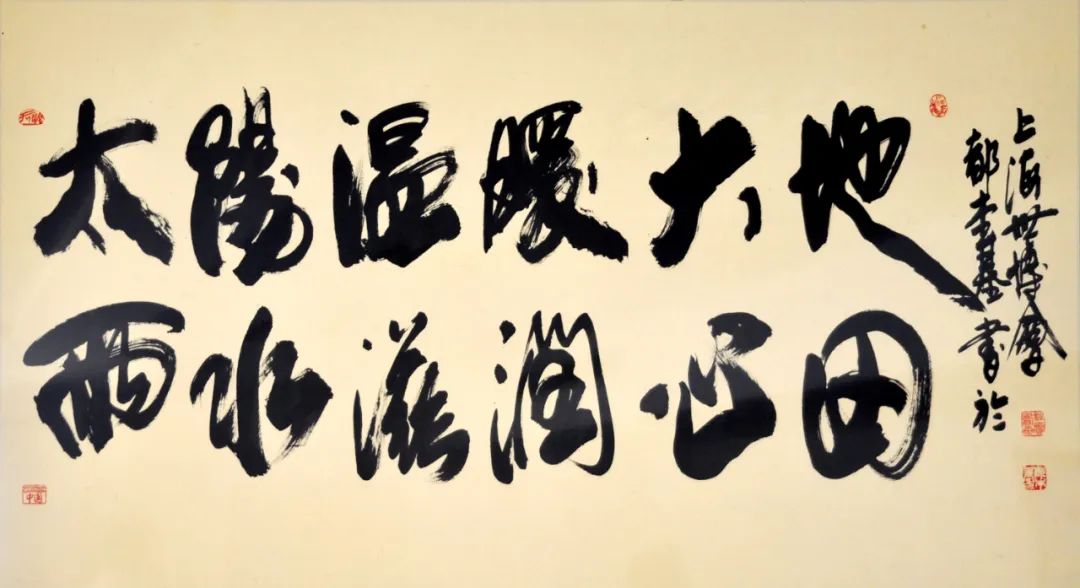 太陽温暖大地
雨水滋潤心田
都本基書於
上海世博